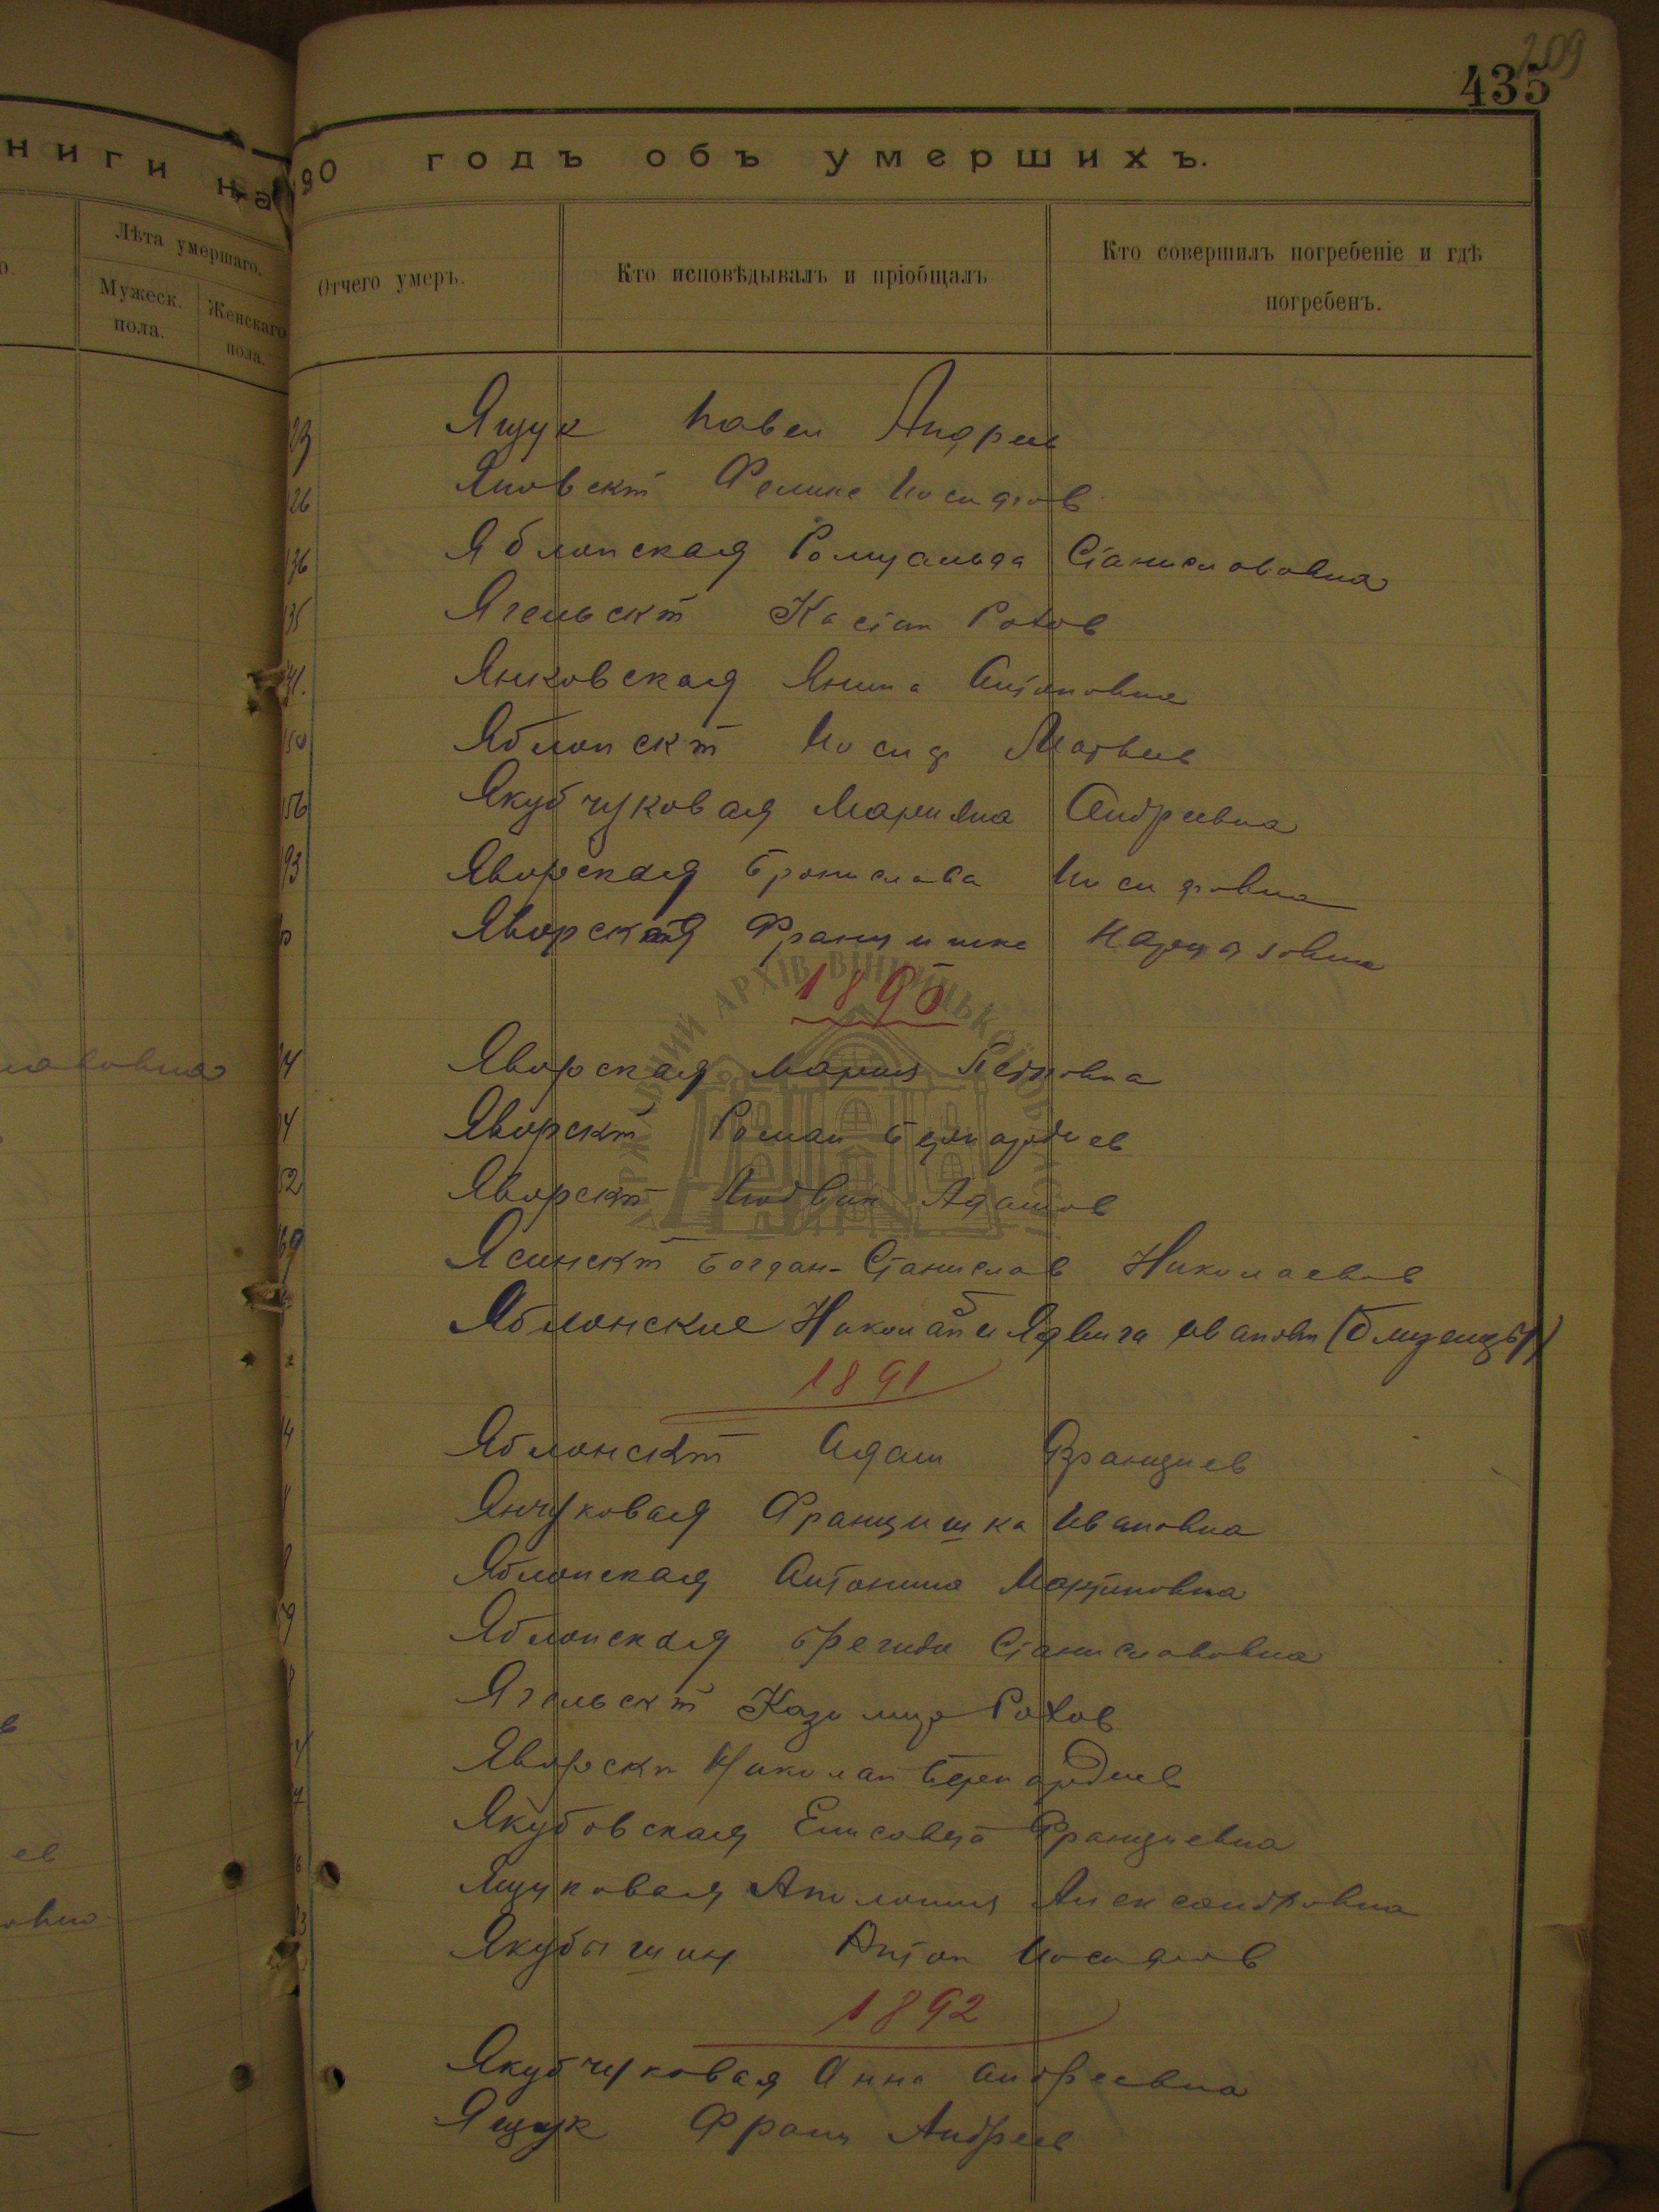 209
435
ниги на 190 годъ объ умершихъ.
Лѣта умершаго.
Мужеск. пола.
Женскаго пола.
Отчего умеръ.
Кто исповѣдывалъ и пріобщалъ
Кто совершилъ погребеніе и гдѣ погребенъ.
Ящук Павел Андреев
126 Яновскій Феликс Иосифов
136 Яблонская Ромуальда Станиславовна
135 Ягельскій Касіан Рохов
141. Янковская Янина Антоновна
150 Яблонскій Иосиф Матвеев
156 Якубчуковая Марияна Андреевна
193 Яворская Бронислава Иосифовна
Яворская Францишка
1890
Яворская Мария Петровна
Яворскій Роман Бернардиев
52 Яворскій Людвик Адамов
169 Ясинскій Богдан-Станислав Николаевов
Яблонские Николай и Ядвига Иванов (близнецы)
1891
Яблонскій Адам Франциев
Янчуковая Францишка Ивановна
Яблонская Антонина Мартиновна
59 Яблонская Бригида Станиславовна
Ягельскій Казимир Рохов
Яворскій Николай Бернардиев
Якубовская Елисавета Францевна
Ящуковая Аполония Александровна
Якубышин Антон Иосифов
1892
Якубчуковая Анна Андреевна
Ящук Франц Андреев
ДЕРЖАВНИЙ АРХІВ ВІННИЦЬКОЇ ОБЛАСТІ